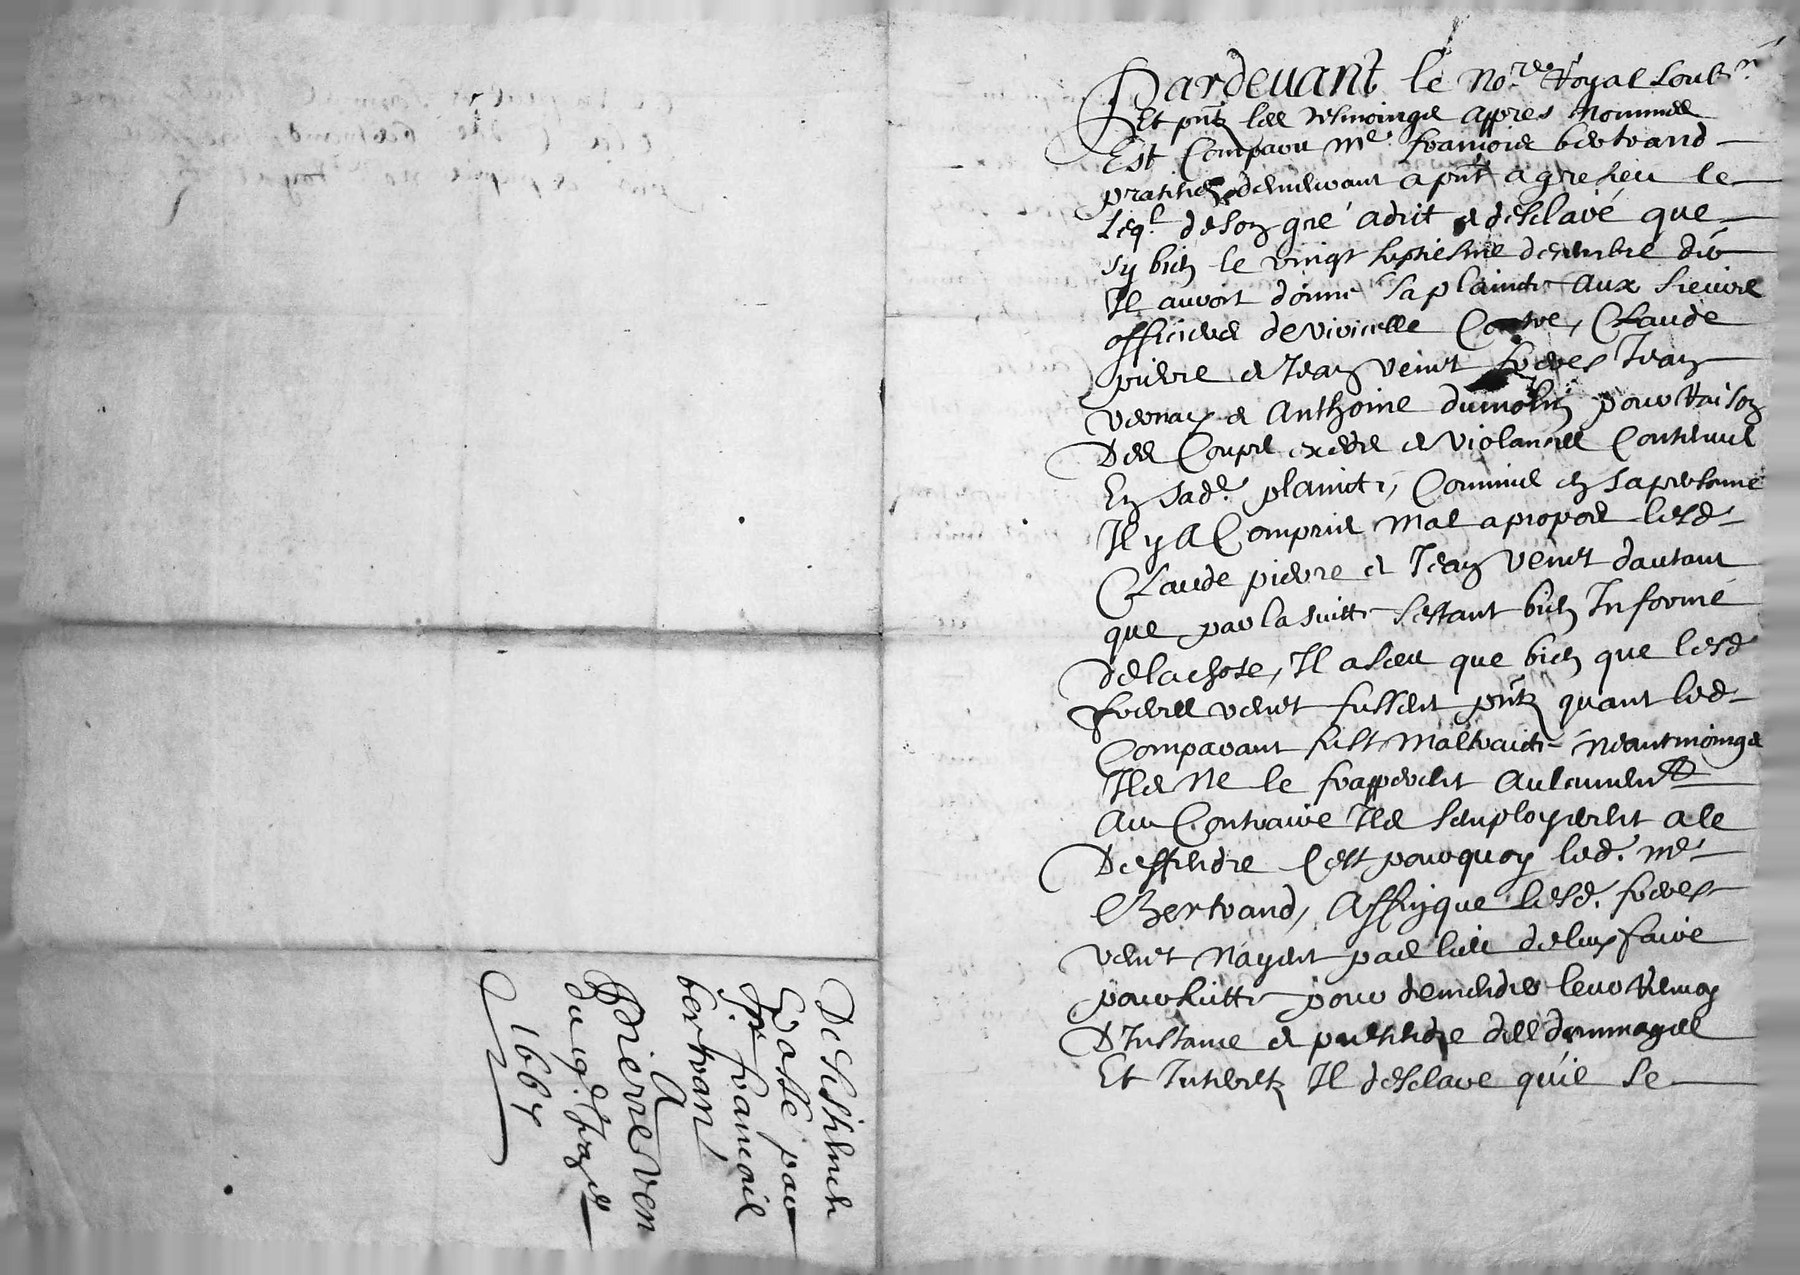 Pardevant le no.re Royal soub.né
Et pntz les tesmoings Appres nommes
Est Comparu Me. françois bertrand
pratitien demeurant a pnt a gresieu le
Leq.l de son gré a dict et desclaré que
sy bien le vingt septiesme decembre der
Il auroit donné sa plaincte Aux sieurs
officiers de Contre, Claude
pierre et Jean venet freres Jean
vernay et Anthoine dumolin pour Raison
Des Coups exces et violances Contenus
En sad. plaincte, Commis en sa personne
Il y A Compris mal apropos lesd
Claude pierre et Jean Venet dautant
que par la suitte sestant bien Informé
de la chose, Il a sceu que bien que lesd
freres venet fussent pntz quant led
Comparant fust maltraicté neantmoings
Ils Ne le frapperent Aulcunement
Au Contraire Ils semployerent a le
Deffendre Cest pourquoy led. me
Bertrand, Affin que lesd. freres
venet nayent pas lieu de luy faire
poursuitte pour demender leur Renvoy
D'Instance et pretendre des dommages
Et Interetz Il desclare qu'il se
Desistement
passé par
Sr. francois
bertran
A
Pierre ven
du
1667